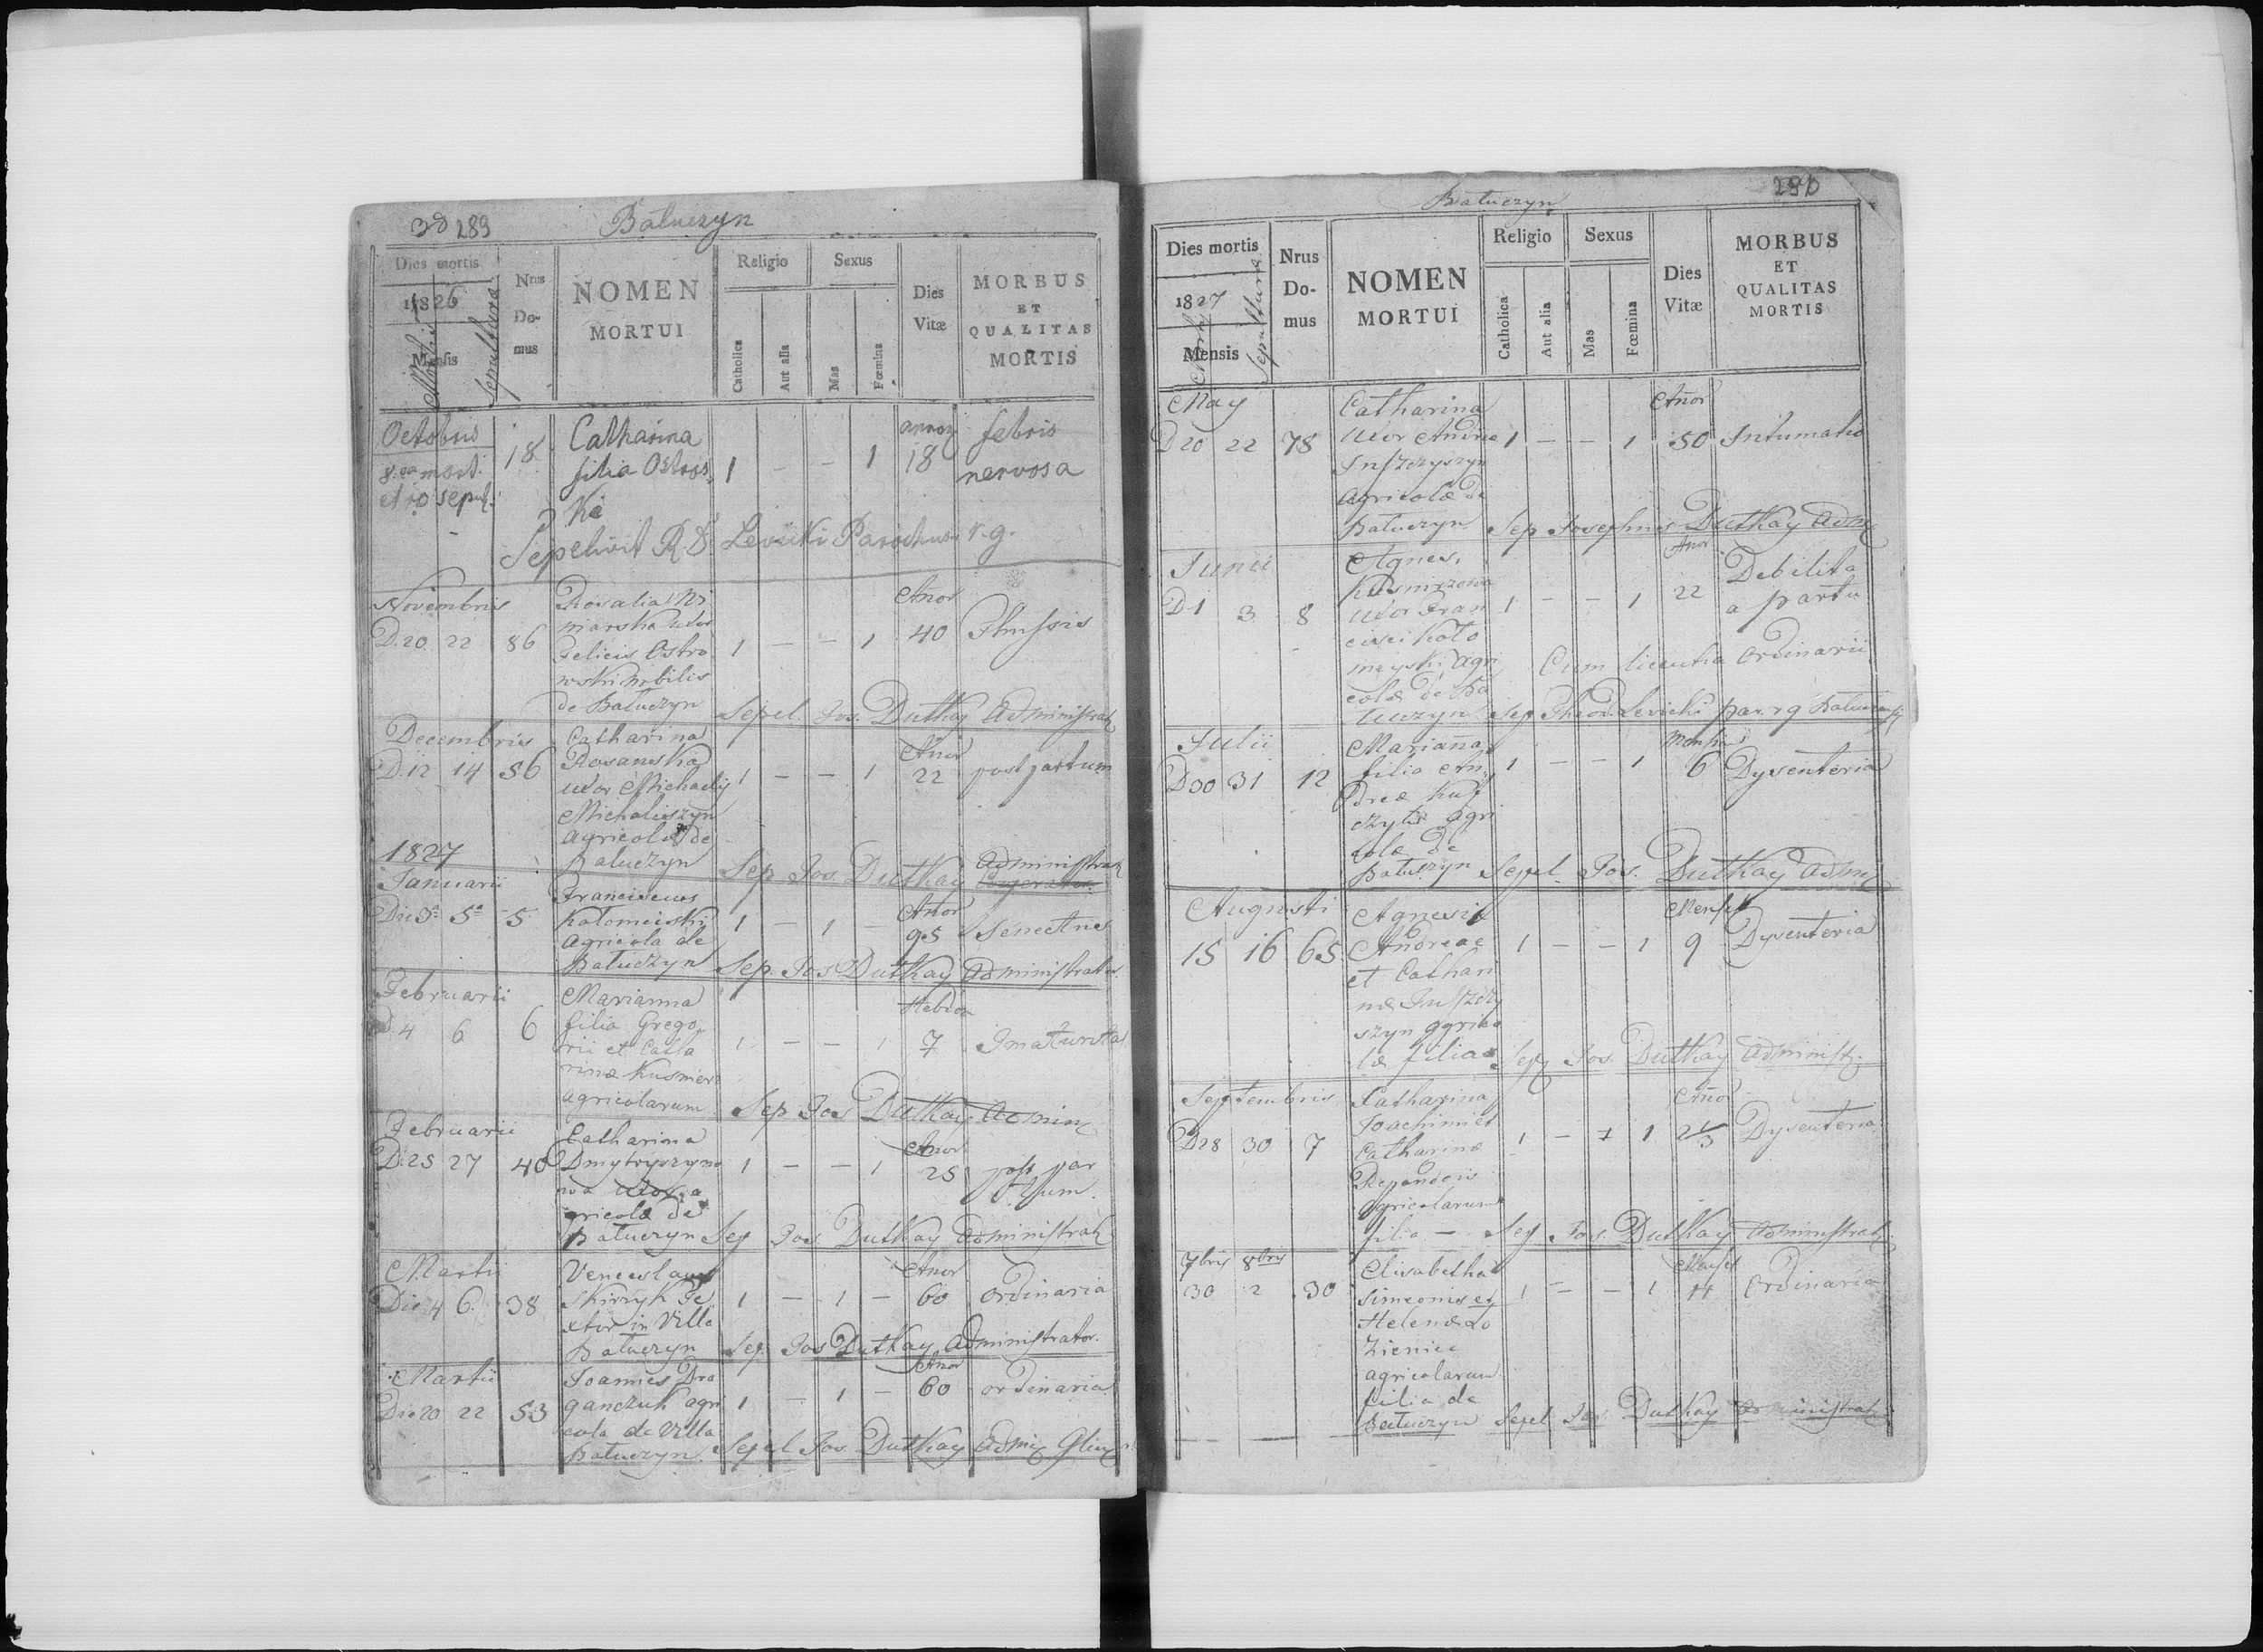 289
Batuczyn
Dies mortis
1826
Mortis
Sepulturæ
Mensis
Nrus Do- mus
NOMEN
MORTUI
Religio
Catholica
Aut alia
Sexus
Mas
Fœmina
Dies
Vitæ
MORBUS
ET
QUALITAS
MORTIS
Octobris
8.va mort.
et 10 sepul.
18
Catharina
filia Ostros
ka
1 - - 1
annor
18
febris
nervosa
Sepelivit R. D. Levicki Parochus r. g.
Novembris
D. 20 22 86
Rosalia
uxor
Felicis Ostro
wski nobilis
de Batuczyn
1 - - 1
Anor
40
Phtysis
Sepel. Jos. Dutkay Administrat
Decembris
D. 12 14 56
Catharina
Rosanska
uxor Michaelis
Michaliszyn
agricolæ de
Batuczyn
1 - - 1
Anor
22
post partum
Sep. Jos. Dutkay Administrat
1827
Januarii
Die 3a 5a 5
Franciscus
Kołomeiski
agricola de
Batuczyn
1 - 1 -
Anor
95
Senectus
Sep. Jos Dutkay Administrator
Februarii
D. 4 6 6
Marianna
filia Grego
rii et Catha
rinæ Kusnierz
agricolarum
1 - - 1
Hebdo
7
Imaturitas
Sep Jos Dutkay Admin
Februarii
D. 25 27 40
Catharina
Dmytryszyno
wa uxor a
gricolæ de
Batuczyn
1 - - 1
Anor
25
post par
tum.
Sep Jos. Dutkay Administrat
Martii
Die 4 6. 38
Venceslaus
Te
xtor in Villa
Batuczyn
1 - 1 -
Anor
60
Ordinaria
Sep. Jos Dutkay Administrator.
Martii
Die 20 22 53
Joannes Dra
ganczuk agri
cola de Villa
Batuczyn.
1 - 1 -
Anor
60
ordinaria
Sepel Jos. Dutkay Admi
Batuczyn
290
Dies mortis
1827
Mortis
Sepulturæ
Mensis
Nrus
Do-
mus
NOMEN
MORTUI
Religio
Catholica
Aut alia
Sexus
Mas
Fœmina
Dies
Vitæ
MORBUS
ET
QUALITAS
MORTIS
May
D 20 22 78
Catharina
uxor Andreæ
agricolæ de
Batuczyn
1 - - 1
Añor
50
Intumatio
Sep Josephus Dutkay Adm
Junii
D 1 3 8
Agnes,
Kusnirzowa
uxor Fran
cisci Koło
meyski agri
colæ de Ba
tuczyn
1 - - 1
Anor
22
Debilita
a partu
Cum licentia Ordinarii
Sep Theod. Levicki par. r g
Julii
D 30 31 12
Marianna
filia An
dreæ
agri
colæ de
Batuczyn
1 - - 1
Mensium
6
Dysenteria
Sepel. Jos. Dutkay Admi
Augusti
15 16 65
Agnesia
Andreae
et Cathari
næ
szyn agrico
læ filia
1 - - 1
Mensium
9
Dysenteria
Sep Jos. Dutkay Administ.
Septembris
D 28 30 7
Catharina
Joachimi et
Catharinæ
agricolarum
filia -
1 - 1 1
Añor
Dysenteria
Sep Jos. Dutkay Administrat
7bris 8bris
30 2 30
Elisabetha
Simeonis et
Helenæ Ło
zieniec
agricolarum
filia de
Batuczyn
1 - - 1
Mensis
Ordinaria
Sepel Jos. Dutkay Administrat